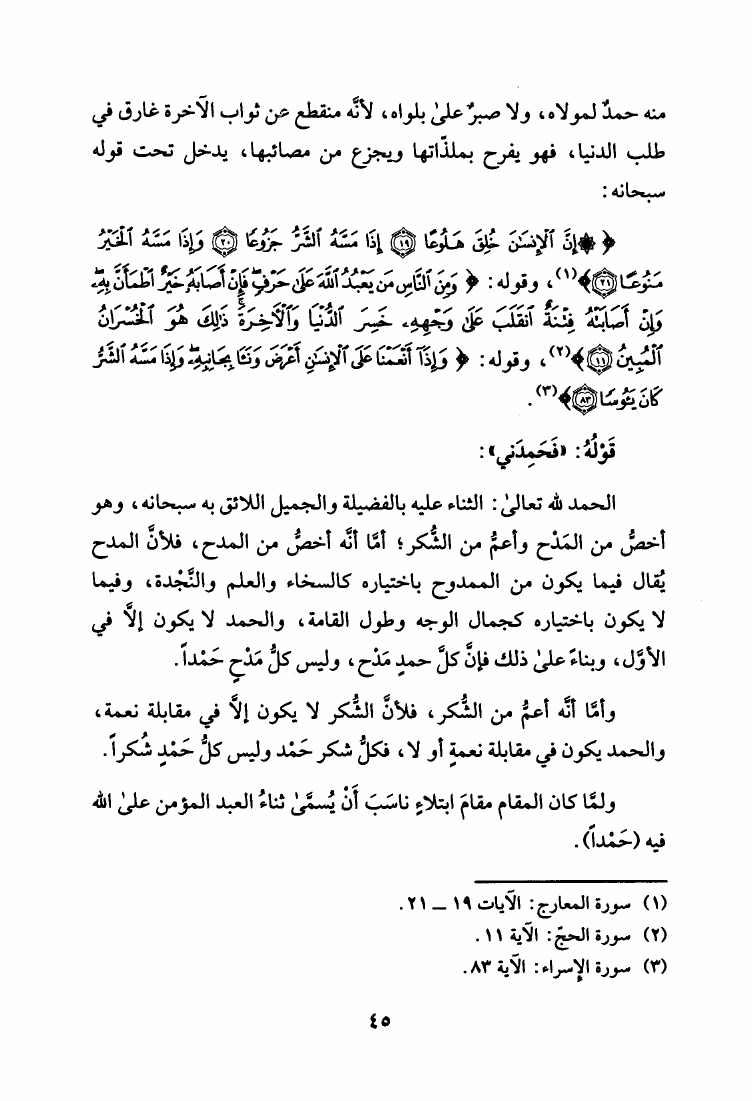 منه حمدٌ لمولاه، ولا صبرٌ علىٰ بلواه، لأنَّه منقطع عن ثواب الآخرة غارق في
طلب الدنيا، فهو يفرح بملذّاتها ويجزع من مصائبها، يدخل تحت قوله
سبحانه:
﴿ ۞ إِنَّ ٱلْإِنسَٰنَ خُلِقَ هَلُوعًا ۝١٩ إِذَا مَسَّهُ ٱلشَّرُّ جَزُوعًا ۝٢٠ وَإِذَا مَسَّهُ ٱلْخَيْرُ
مَنُوعًا ۝٢١﴾(١)، وقوله: ﴿ وَمِنَ ٱلنَّاسِ مَن يَعْبُدُ ٱللَّهَ عَلَىٰ حَرْفٍ ۖ فَإِنْ أَصَابَهُۥ خَيْرٌ ٱطْمَأَنَّ بِهِۦ ۖ
وَإِنْ أَصَابَتْهُ فِتْنَةٌ ٱنقَلَبَ عَلَىٰ وَجْهِهِۦ خَسِرَ ٱلدُّنْيَا وَٱلْءَاخِرَةَ ۚ ذَٰلِكَ هُوَ ٱلْخُسْرَانُ
ٱلْمُبِينُ ۝١١﴾(٢)، وقوله: ﴿ وَإِذَآ أَنْعَمْنَا عَلَى ٱلْإِنسَٰنِ أَعْرَضَ وَنَـَٔا بِجَانِبِهِۦ ۖ وَإِذَا مَسَّهُ ٱلشَّرُّ
كَانَ يَـُٔوسًا ۝٨٣﴾(٣).
قَوْلُهُ: «فَحَمِدَني»:
الحمد لله تعالىٰ: الثناء عليه بالفضيلة والجميل اللائق به سبحانه، وهو
أخصُّ من المَدْح وأعمُّ من الشُّكر؛ أمَّا أنَّه أخصُّ من المدح، فلأنَّ المدح
يُقال فيما يكون من الممدوح باختياره كالسخاء والعلم والنَّجْدة، وفيما
لا يكون باختياره كجمال الوجه وطول القامة، والحمد لا يكون إلَّا في
الأوَّل، وبناءً علىٰ ذلك فإنَّ كلَّ حمدٍ مَدْح، وليس كلُّ مَدْحٍ حَمْداً.
وأمَّا أنَّه أعمُّ من الشُّكر، فلأنَّ الشُّكر لا يكون إلَّا في مقابلة نعمة،
والحمد يكون في مقابلة نعمةٍ أو لا، فكلُّ شكر حَمْد وليس كلُّ حَمْدٍ شُكراً.
ولمَّا كان المقام مقامَ ابتلاءٍ ناسَبَ أنْ يُسمَّىٰ ثناءُ العبد المؤمن علىٰ الله
فيه (حَمْداً).
(١) سورة المعارج: الآيات ١٩ ـ ٢١.
(٢) سورة الحجّ: الآية ١١.
(٣) سورة الإسراء: الآية ٨٣.
٤٥